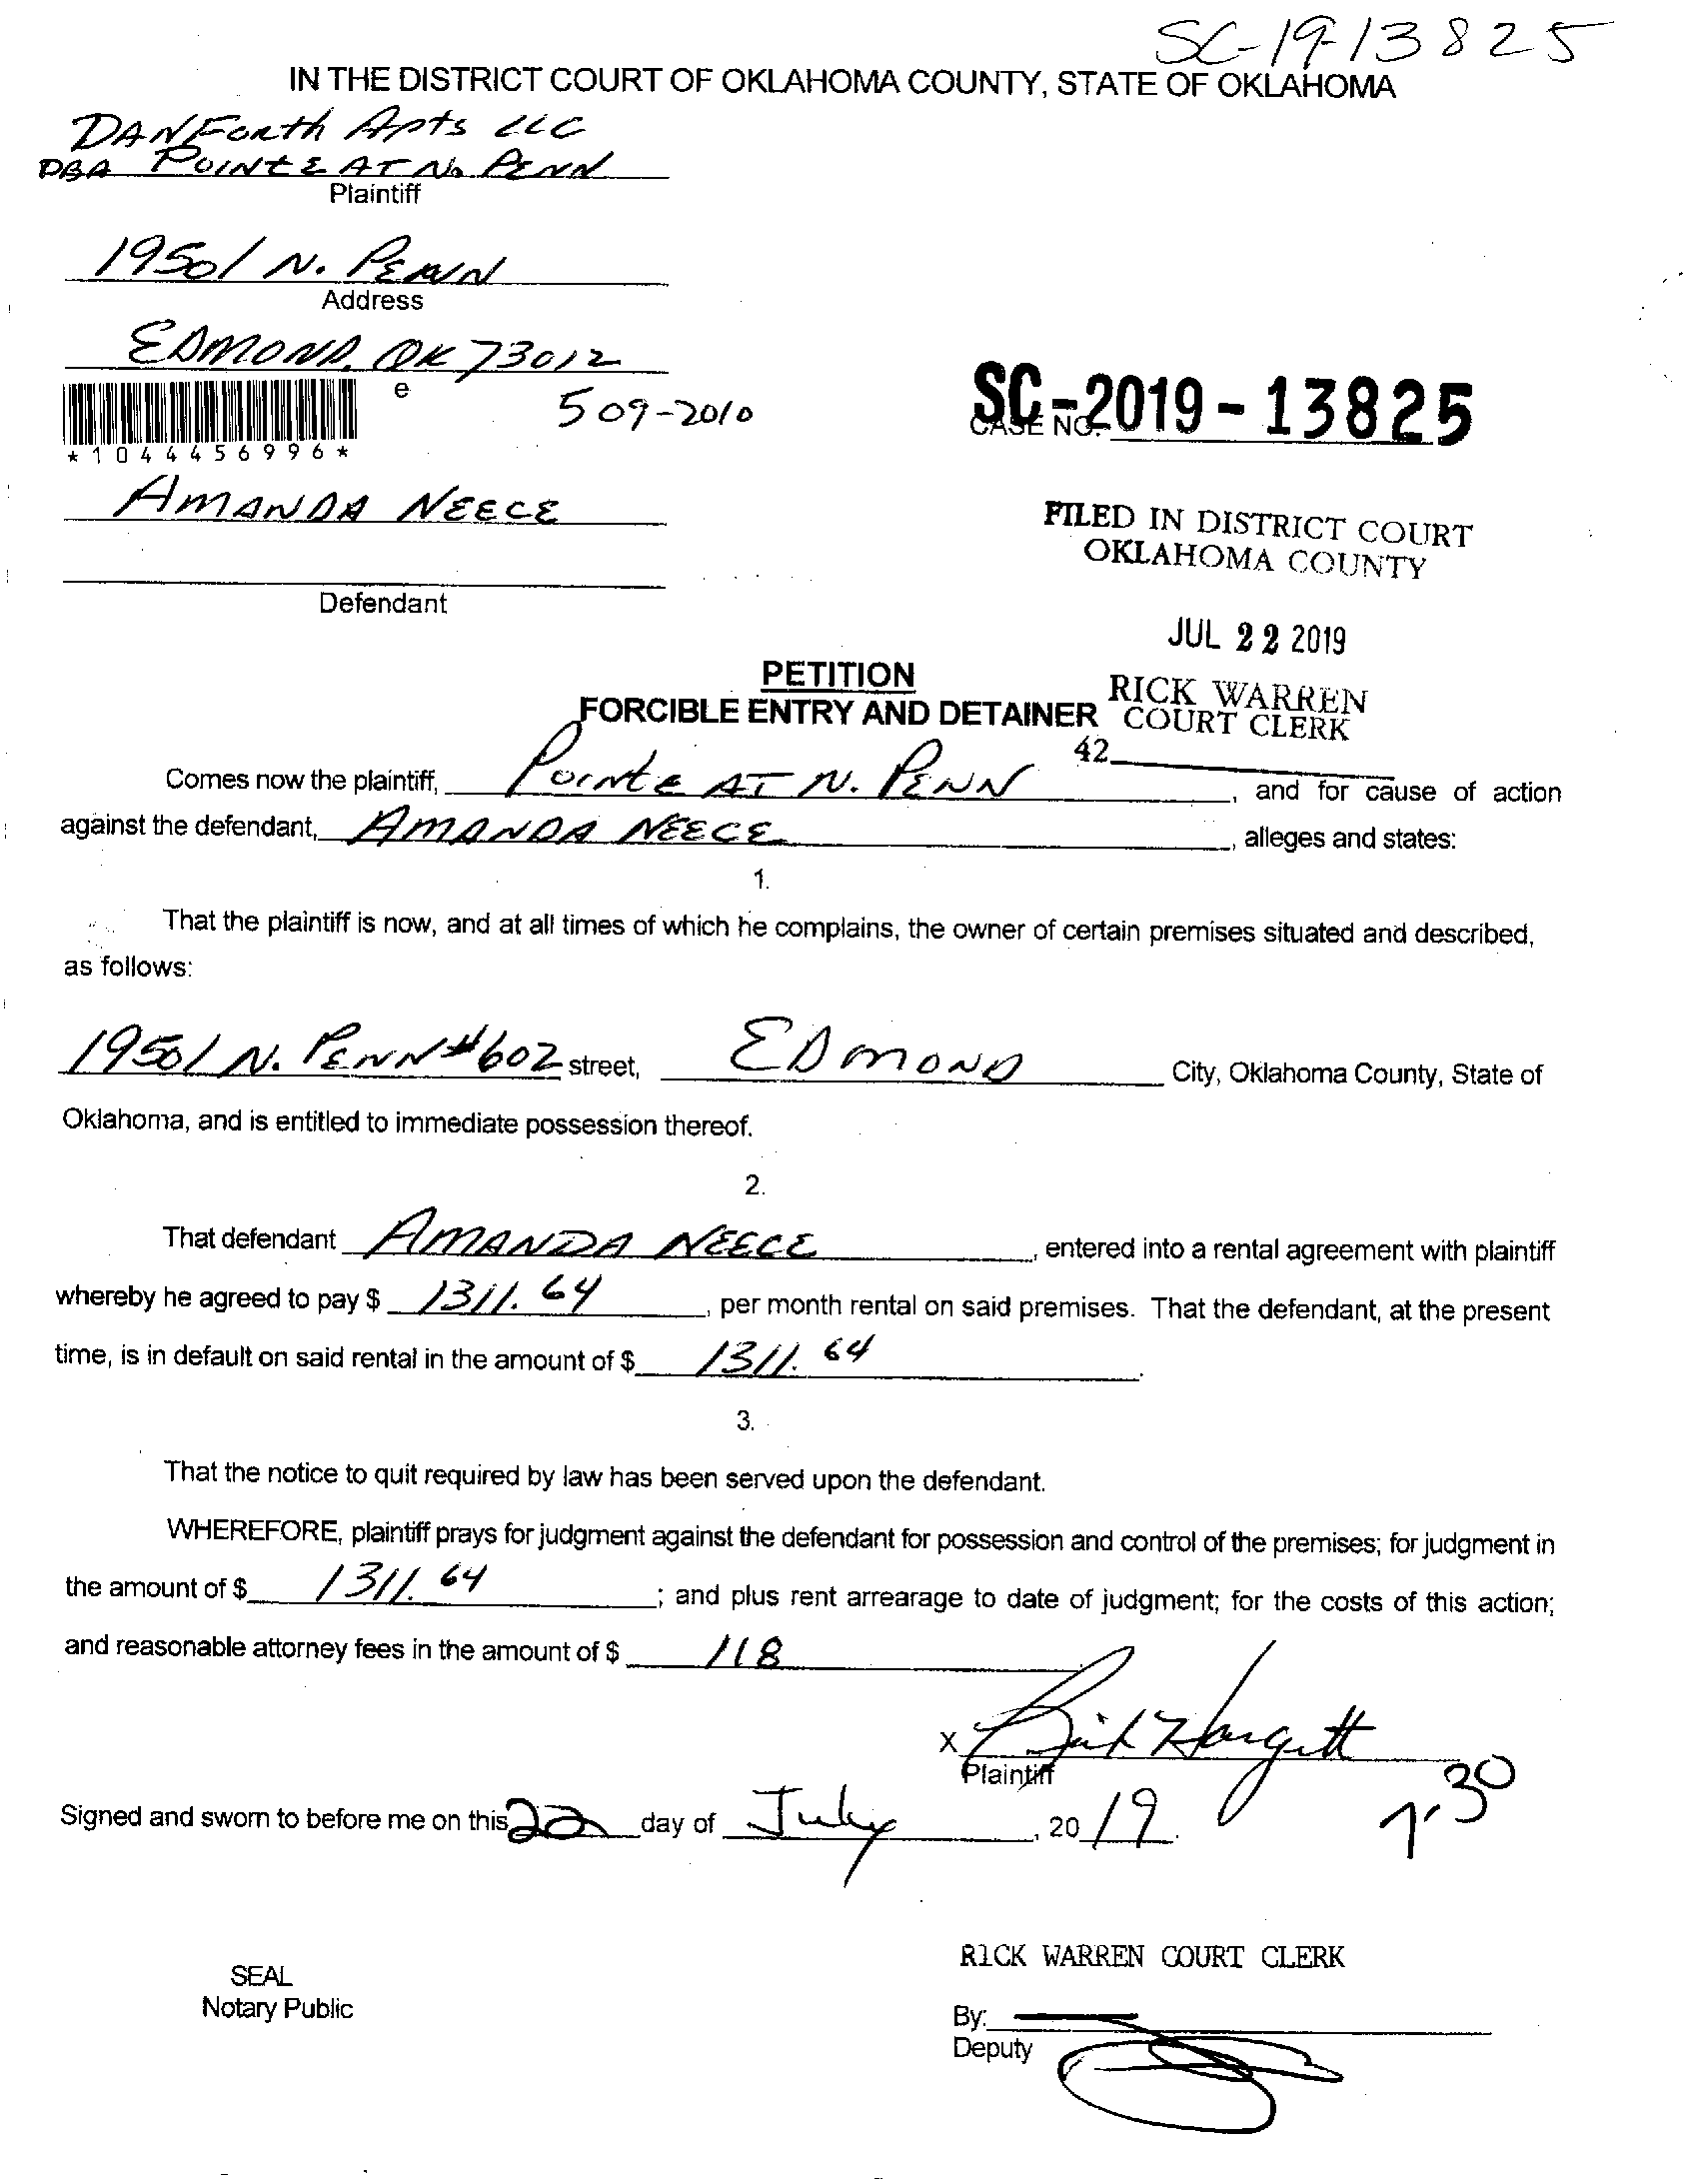 SC-19-13825
IN THE DISTRICT COURT OF OKLAHOMA COUNTY, STATE OF OKLAHOMA
DANForth Apts LLC
DBA POINTE AT No. PENN
Plaintiff
19501 N. PENN
Address
EDMOND, OK 73012
e
509-2010
*1044456996*
SC-2019-13825
CASE NO.
AMANDA NEECE
FILED IN DISTRICT COURT
OKLAHOMA COUNTY
Defendant
JUL 22 2019
PETITION
RICK WARREN
FORCIBLE ENTRY AND DETAINER
COURT CLERK
42
Comes now the plaintiff, Pointe AT N. PENN, and for cause of action
against the defendant, AMANDA NEECE, alleges and states:
1.
That the plaintiff is now, and at all times of which he complains, the owner of certain premises situated and described,
as follows:
19501 N. PENN #602 street, EDMOND City, Oklahoma County, State of
Oklahoma, and is entitled to immediate possession thereof.
2.
That defendant AMANDA NEECE, entered into a rental agreement with plaintiff
whereby he agreed to pay $ 1311.64, per month rental on said premises. That the defendant, at the present
time, is in default on said rental in the amount of $ 1311.64.
3.
That the notice to quit required by law has been served upon the defendant.
WHEREFORE, plaintiff prays for judgment against the defendant for possession and control of the premises; for judgment in
the amount of $ 1311.64; and plus rent arrearage to date of judgment; for the costs of this action;
and reasonable attorney fees in the amount of $ 118
X Hargett
Plaintiff
1:30
Signed and sworn to before me on this 22 day of July, 2019.
RICK WARREN COURT CLERK
SEAL
Notary Public
By:
Deputy